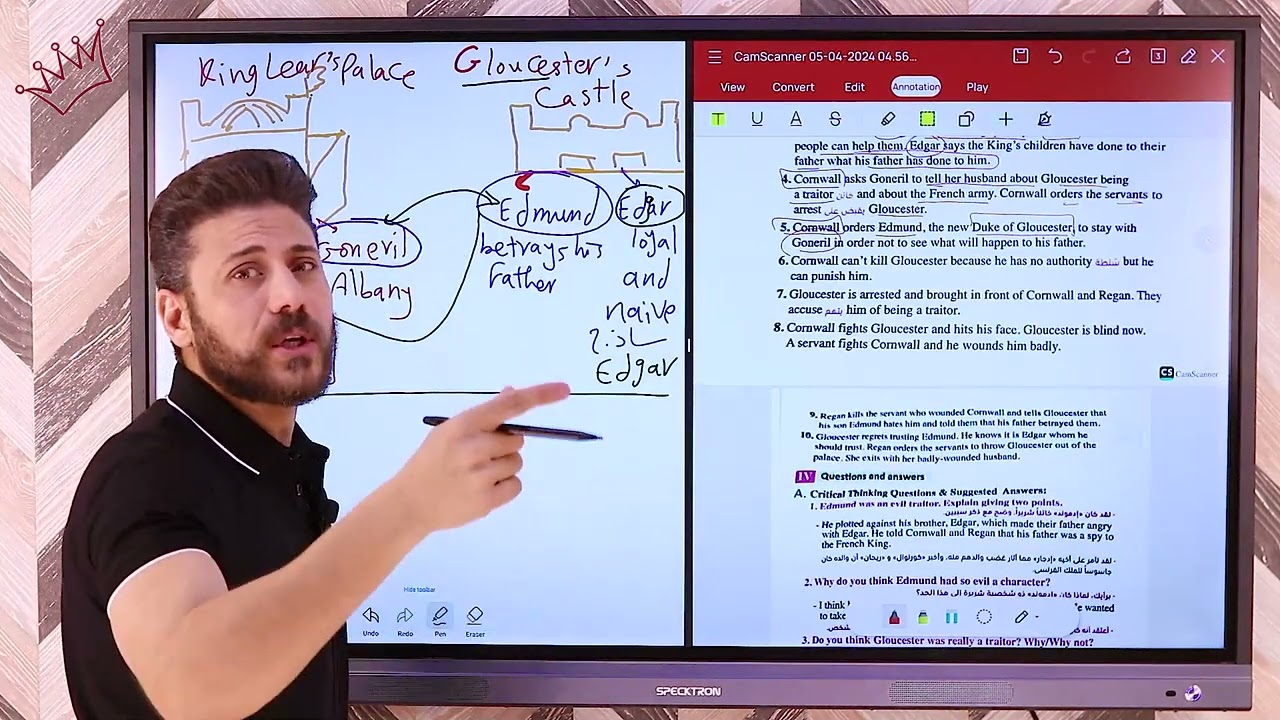 King Lear's Palace
Gloucester's
Castle
Goneril
Albany
Edmund
betrays his
Father
Edgar
loyal
and
naive
ساذج
Edgar
Hide toolbar
Undo
Redo
Pen
Eraser
CamScanner 05-04-2024 04.56...
View
Convert
Edit
Annotation
Play
people can help them. Edgar says the King's children have done to their
father what his father has done to him.
4. Cornwall asks Goneril to tell her husband about Gloucester being
a traitor خائن and about the French army. Cornwall orders the servants to
arrest يقبض على Gloucester.
5. Cornwall orders Edmund, the new Duke of Gloucester, to stay with
Goneril in order not to see what will happen to his father.
6. Cornwall can't kill Gloucester because he has no authority سُلطة but he
can punish him.
7. Gloucester is arrested and brought in front of Cornwall and Regan. They
accuse يتهم him of being a traitor.
8. Cornwall fights Gloucester and hits his face. Gloucester is blind now.
A servant fights Cornwall and he wounds him badly.
CS CamScanner
9. Regan kills the servant who wounded Cornwall and tells Gloucester that
his son Edmund hates him and told them that his father betrayed them.
10. Gloucester regrets trusting Edmund. He knows it is Edgar whom he
should trust. Regan orders the servants to throw Gloucester out of the
palace. She exits with her badly-wounded husband.
IV Questions and answers
A. Critical Thinking Questions & Suggested Answers:
1. Edmund was an evil traitor. Explain giving two points.
- لقد كان «إدموند» خائناً شريراً. وضح مع ذكر سببين.
- He plotted against his brother, Edgar, which made their father angry
with Edgar. He told Cornwall and Regan that his father was a spy to
the French King.
- لقد تآمر على أخيه «إدجار» مما أثار غضب والدهم منه، وأخبر «كورنوال» و «ريجان» أن والده كان
جاسوساً للملك الفرنسي.
2. Why do you think Edmund had so evil a character?
- برأيك، لماذا كان «إدموند» ذو شخصية شريرة إلى هذا الحد؟
- I think
wanted
to take
3. Do you think Gloucester was really a traitor? Why/Why not?
SPECKTRON